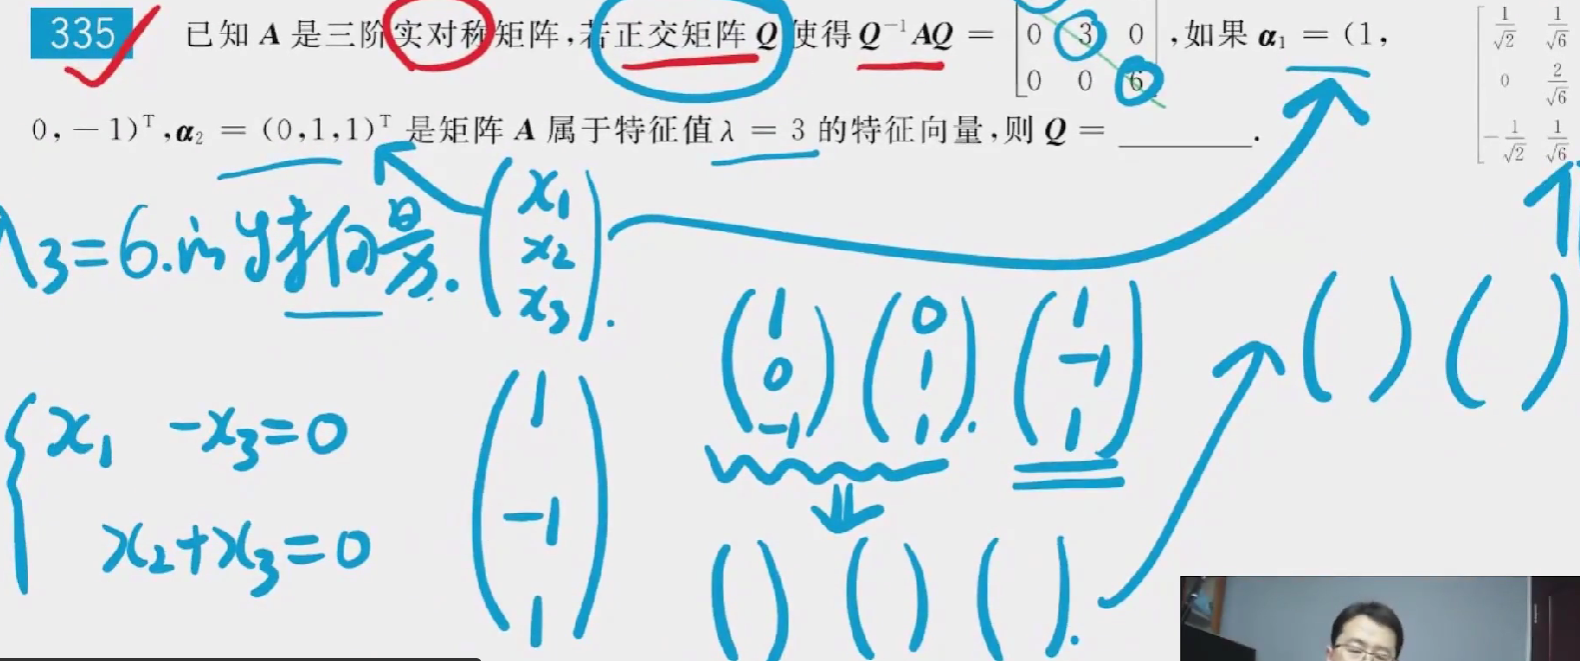 335 已知 A 是三阶实对称矩阵,若正交矩阵 Q 使得 Q⁻¹AQ = [0 3 0; 0 0 6],如果 α₁ = (1,
0, -1)ᵀ, α₂ = (0,1,1)ᵀ 是矩阵 A 属于特征值 λ = 3 的特征向量,则 Q = ________.
1/√2 1/√6
0 2/√6
-1/√2 1/√6
λ3=6.的特向量为. (x1 x2 x3).
(1 0 -1) (0 1 1). (1 -1 1) ( ) ( )
{ x1 -x3=0
x2+x3=0
(1 -1 1)
( ) ( ) ( ).